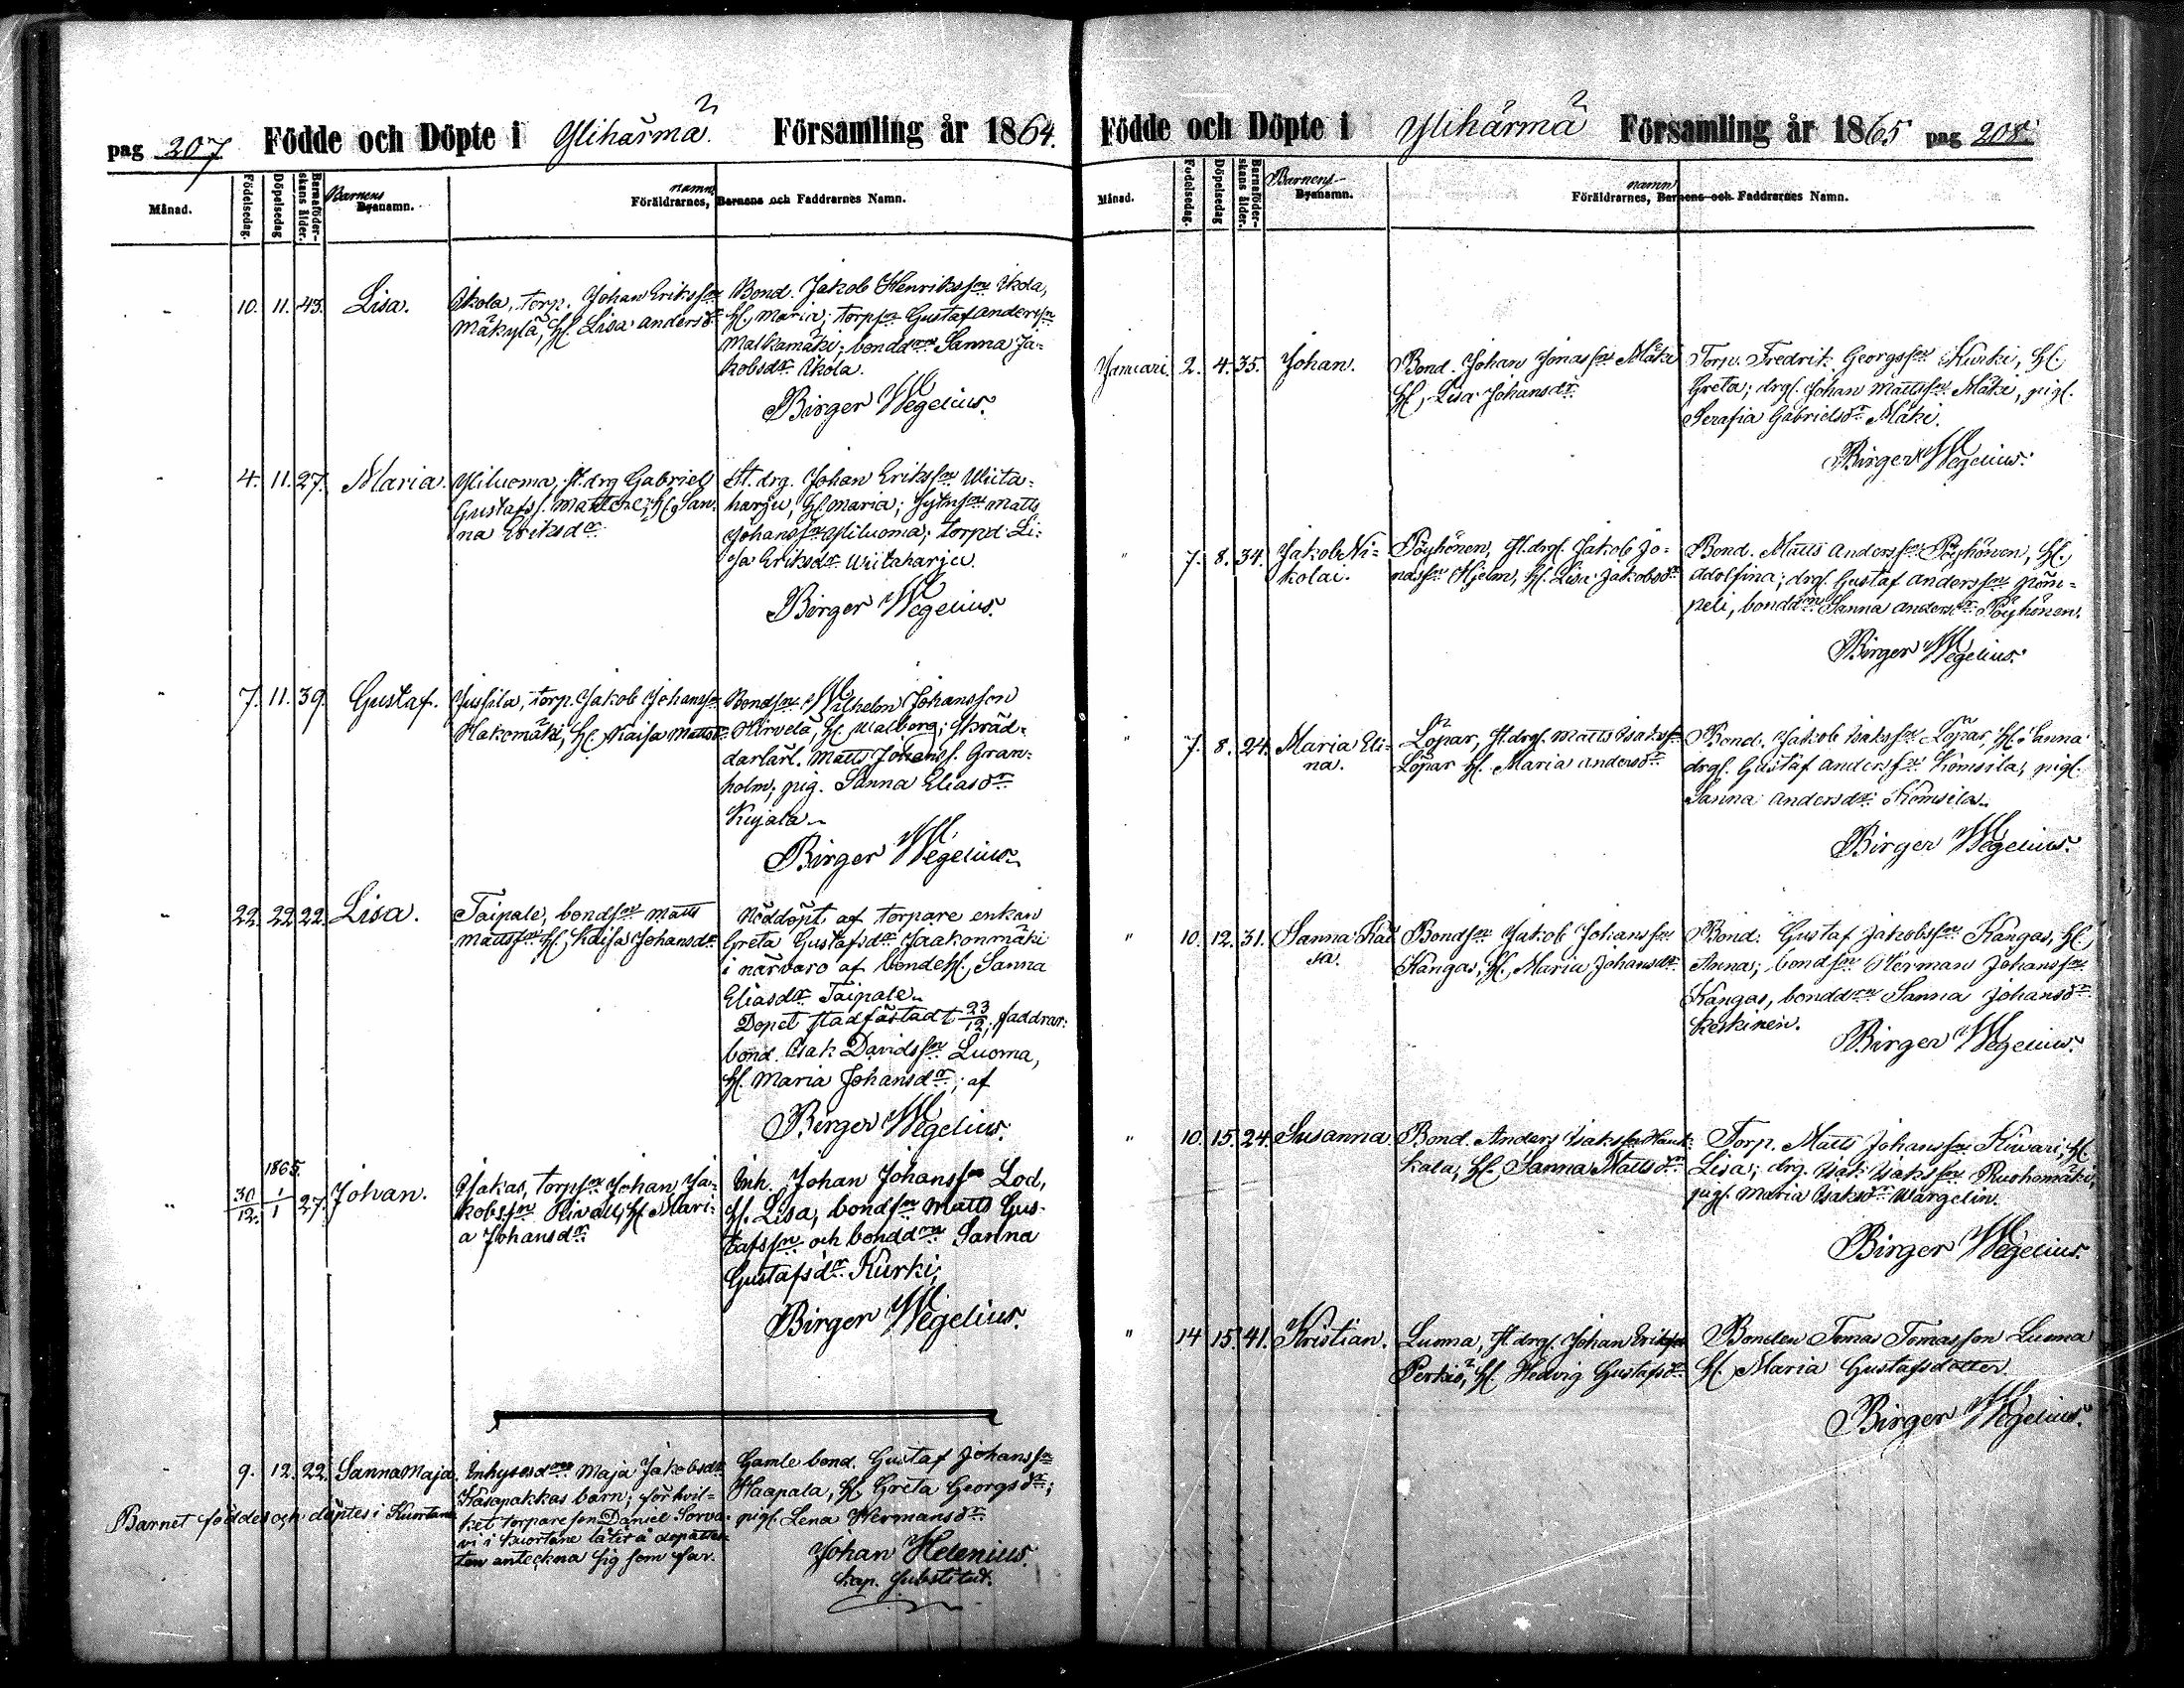 pag 207 Födde och Döpte i Ylihärmä Församling år 1864.
Månad.
Födelsedag.
Döpelsedag
Barnaföder-
skans ålder.
Barnens
Byanamn.
namn
Föräldrarnes, Barnens och Faddrarnes Namn.
" 10. 11. 43. Lisa.
Ekola, torp. Johan Eriksson
Mäkylä, H. Lisa Andersdr
Bond. Jakob Henriksson Ekola,
H. Maria; torpson Gustaf Andersson
Malkamäki; bonddrn Sanna Ja-
kobsdr Ekola.
Birger Wegelius.
" 4. 11. 27. Maria.
Yliluoma, st. drg Gabriel
Gustafss. H. San-
na Eriksdr
St. drg. Johan Eriksson Wiita-
harju, H. Maria; Matts
Johansson Yliluoma; torpd. Li-
sa Eriksdr Wiitaharju.
Birger Wegelius.
" 7. 11. 39. Gustaf.
Jussila, torp. Jakob Johansson
Hakomäki, H. Kaisa Mattsdr
Bondson Wilhelm Johansson
Hirvelä, H. Walborg; skräd-
darlärl. Matts Johanss. Gran-
holm; pig. Sanna Eliasdr
Kujala.
Birger Wegelius.
" 22. 22. 22. Lisa.
Taipale, bondson Matts
Mattsson, H. Kaisa Johansdr
Nöddöpt af torpare enkan
Greta Gustafsdr Jaakonmäki
i närvaro af bondeH. Sanna
Eliasdr Taipale.
Dopet stadfästadt 23/12; faddrar:
bond. Isak Davidsson Luoma,
H. Maria Johansdr; af
Birger Wegelius.
1865.
" 30/12. 1/1 27. Johan.
Pjakas, torpson Johan Ja-
kobsson H. Mari-
a Johansdr
Inh. Johan Johansson Lod,
H. Lisa, bondson Matts Gus-
tafsson och bonddrn Sanna
Gustafsdr Kurki;
Birger Wegelius.
" 9. 12. 22. Sanna Maja.
Barnet föddes och döptes i Kuortane
Inhysesdrn Maja Jakobsdr
Kasapakkas barn; för hvil-
ket torpare son Daniel Sorva-
vi i Kuortane låtit å
anteckna sig som far.
Gamle bond. Gustaf Johansson
Haapala, H. Greta Georgsdr;
pig. Lena Hermansdr
Johan Helenius.
kap. substitut.
Födde och Döpte i Ylihärmä Församling år 1865 pag 208.
Månad.
Födelsedag.
Döpelsedag
Barnaföder-
skans ålder.
Barnens
Byanamn.
namn
Föräldrarnes, Barnens och Faddrarnes Namn.
Januari. 2. 4. 35. Johan.
Bond. Johan Jonasson Mäki
H. Lisa Johansdr
Torp. Fredrik Georgsson Kurki, H.
Greta; drg. Johan Mattsson Mäki, pig.
Serafia Gabrielsdr Mäki.
Birger Wegelius.
" 7. 8. 34. Jakob Ni-
kolai.
Pöyhönen, st. drg. Jakob Jo-
nasson Hjelm, H. Lisa Jakobsdr
Bond. Matts Andersson Pöyhönen, H.
Adolfina; drg. Gustaf Andersson Pöm-
peli, bonddrn Sanna Andersdr Pöyhönen.
Birger Wegelius.
" 7. 8. 24. Maria Eli-
na.
Löpar, st. drg. Matts Isaksson
Löpar H. Maria Andersdr
Bond. Jakob Isaksson Löpar, H. Sanna
drg. Gustaf Andersson Komsila; pig.
Sanna Andersdr Komsila.
Birger Wegelius.
" 10. 12. 31. Sanna Kai-
sa.
Bondson Jakob Johansson
Kangas, H. Maria Johansdr
Bond. Gustaf Jakobsson Kangas, H.
Anna; bondson Herman Johansson
Kangas, bonddrn Sanna Johansdr
Keskinen.
Birger Wegelius.
" 10. 15. 24. Susanna.
Bond. Anders Isaksson Hauk-
kala, H. Sanna Mattsdr
Torp. Matts Johansson Kiwari, H.
Lisa; drg. Isak Isaksson Ruohomäki,
pig. Maria Isaksdr Wargelin.
Birger Wegelius.
" 14 15. 41. Kristian.
Luoma, st. drg. Johan Eriksson
Perkiö, H. Hedvig Gustafsdr
Bonden Tomas Tomasson Luoma
H. Maria Gustafsdotter.
Birger Wegelius.